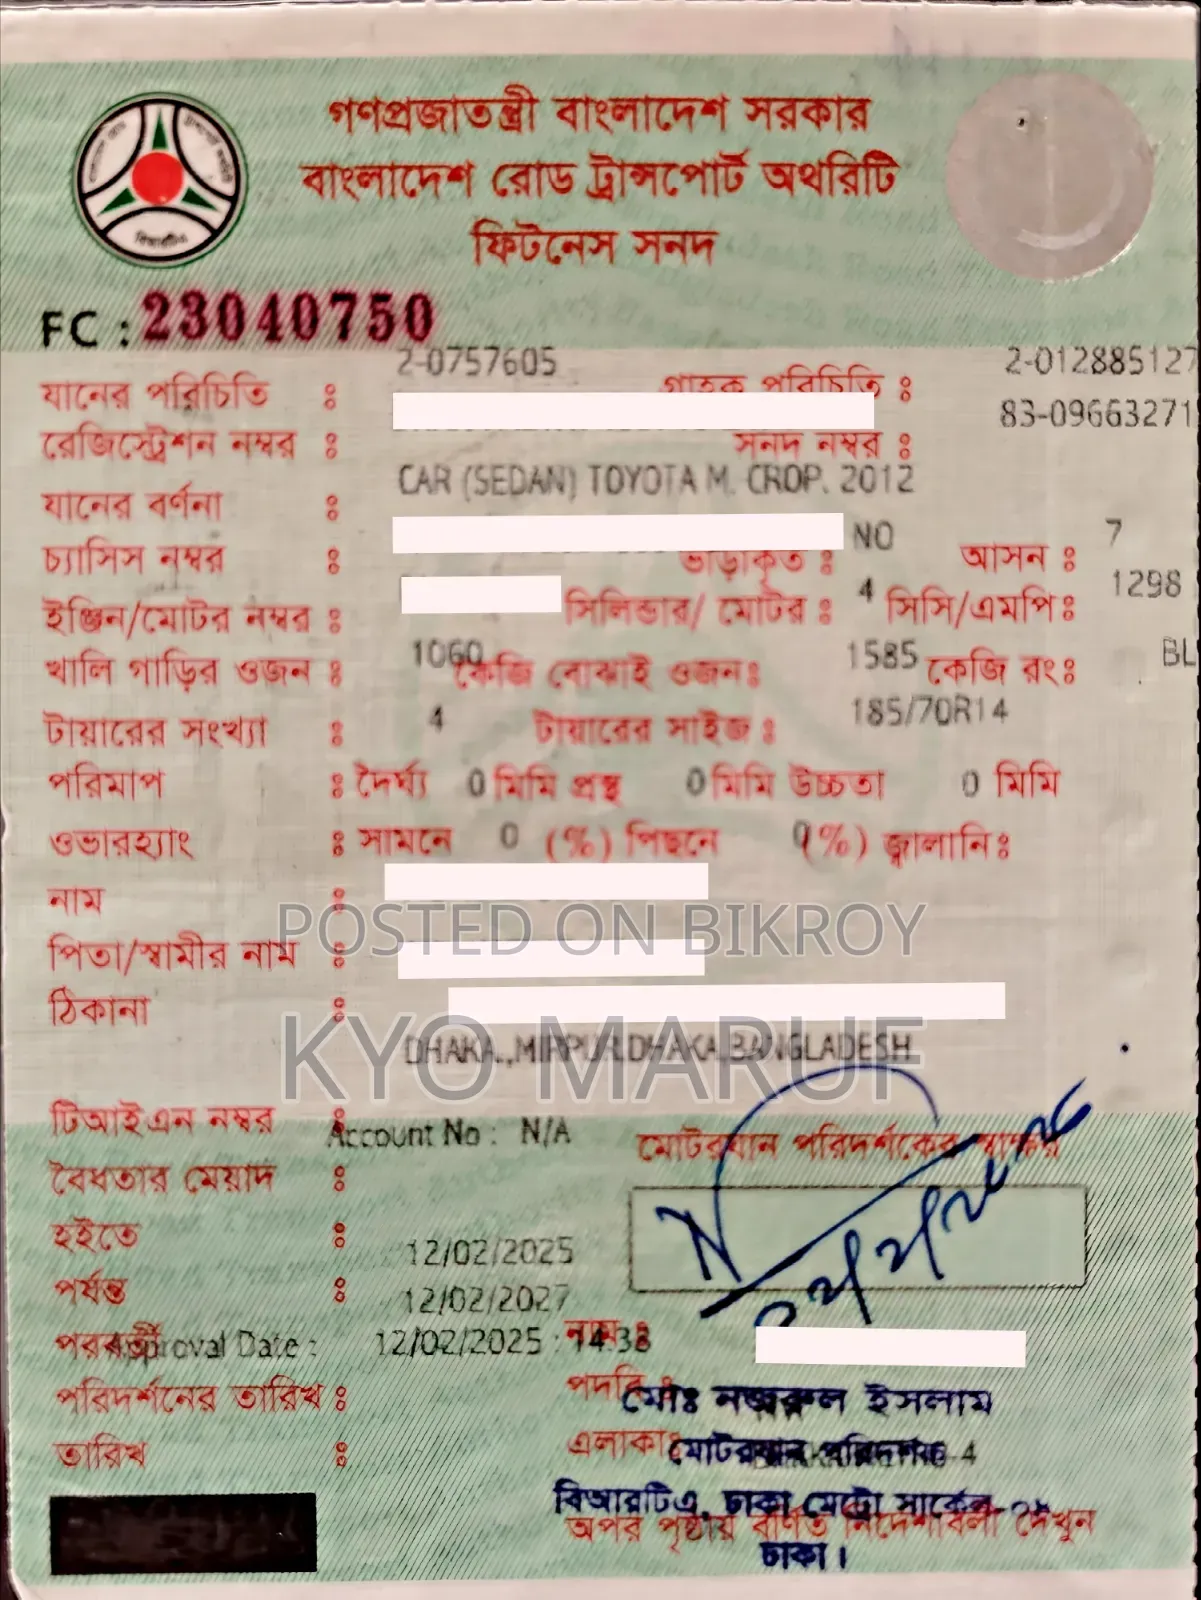 গণপ্রজাতন্ত্রী বাংলাদেশ সরকার
বাংলাদেশ রোড ট্রান্সপোর্ট অথরিটি
ফিটনেস সনদ
বিআরটিএ
FC : 23040750
যানের পরিচিতি : 2-0757605 গ্রাহক পরিচিতি : 2-012885127
রেজিস্ট্রেশন নম্বর : সনদ নম্বর : 83-09663271
যানের বর্ণনা : CAR (SEDAN) TOYOTA M. CROP. 2012
চ্যাসিস নম্বর : ভাড়াকৃত : NO আসন : 7
ইঞ্জিন/মোটর নম্বর : সিলিন্ডার/ মোটর : 4 সিসি/এমপি: 1298
খালি গাড়ির ওজন : 1060 কেজি বোঝাই ওজন: 1585 কেজি রং: BL
টায়ারের সংখ্যা : 4 টায়ারের সাইজ : 185/70R14
পরিমাপ : দৈর্ঘ্য 0 মিমি প্রস্থ 0 মিমি উচ্চতা 0 মিমি
ওভারহ্যাং : সামনে 0 (%) পিছনে (%) জ্বালানি:
নাম :
POSTED ON BIKROY
পিতা/স্বামীর নাম :
ঠিকানা :
KYO MARUF
DHAKA.,MIRPUR,DHAKA,BANGLADESH
টিআইএন নম্বর : Account No : N/A মোটরযান পরিদর্শকের স্বাক্ষর
বৈধতার মেয়াদ :
হইতে : 12/02/2025
পর্যন্ত : 12/02/2027
পরবর্তী Approval Date : 12/02/2025 : 14:38 নাম :
পরিদর্শনের তারিখ : পদবি : মোঃ নজরুল ইসলাম
তারিখ : এলাকা: মোটরযান পরিদর্শক
বিআরটিএ, ঢাকা মেট্রো সার্কেল-
অপর পৃষ্ঠায় বর্ণিত নির্দেশাবলী দেখুন
ঢাকা।